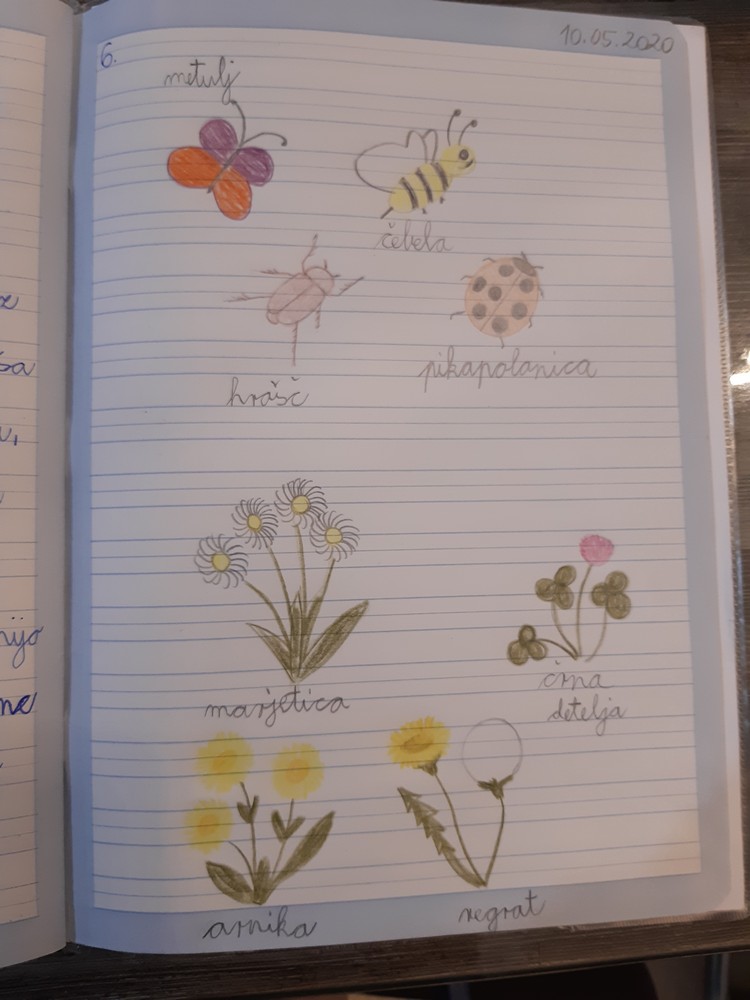 10.05.2020
6.
metulj
čebela
hrošč
pikapolonica
marjetica
črna
detelja
arnika
regrat